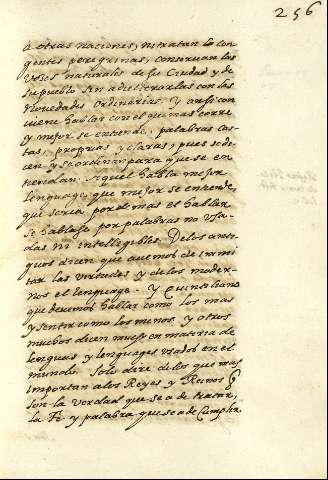 256
a otras naciones, ni tratan con
gentes peregrinas, conseruan las
voses naturales de su Ciudad y de
su pueblo sin adulterarlas con las
novedades ordinarias. y aussi con
uiene hablar con el que mas corre
y mejor se entiende, palabras cas
tas, proprias y claras, pues se di
cen y se ordinan para que se en
tiendan. Aquel habla mejor
lenguage, que mejor se entiende,
que seria por demas el hablar
se hablase por palabras no vsa
das ni intelligibles. De los anti
guos dicen que auemos de immi
tar las virtudes y de los moder-
nos el lenguage. Y Quintiliano
que deuemos hablar como los mas
y sentir como los menos. y otros
muchos dicen mucho en materia de
lenguas y lenguages vsados en el
mundo. Solo dire de los que mas
importan a los Reyes y Reinos q̃
son la verdad que se a de tratar,
la Fe y palabra que se a de Cumplir